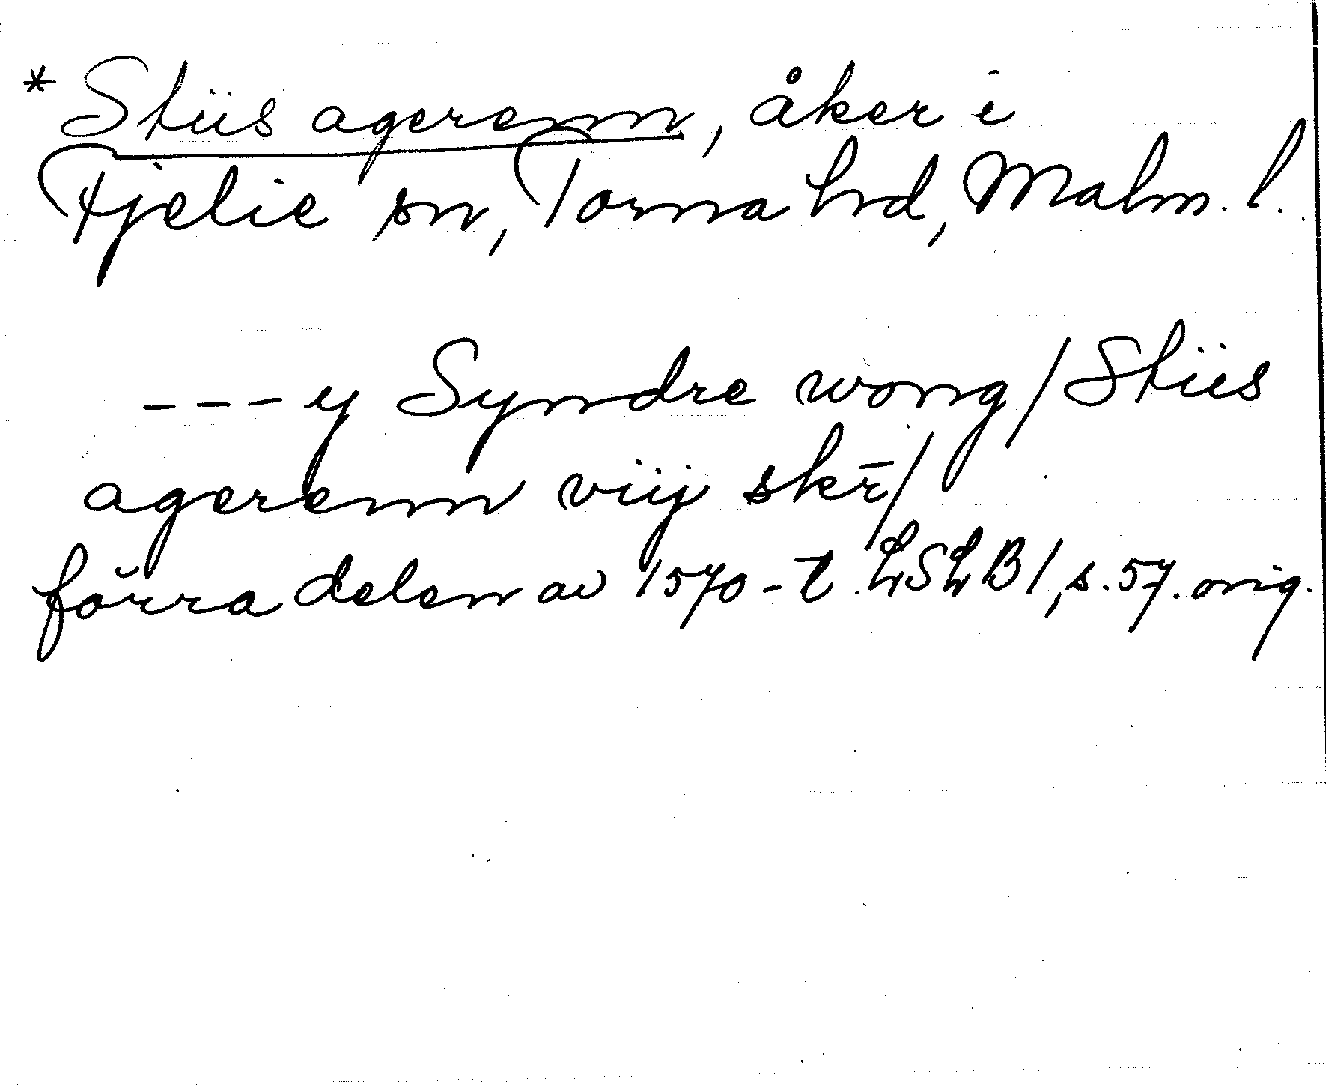 * Stiis agerenn, åker i
Fjelie sn, Torna hrd, Malm. l.
--- y Syndre wong / Stiis
agerenn viij skr̄ /
förra delen av 1570-t. LSLB 1, s. 57. orig.